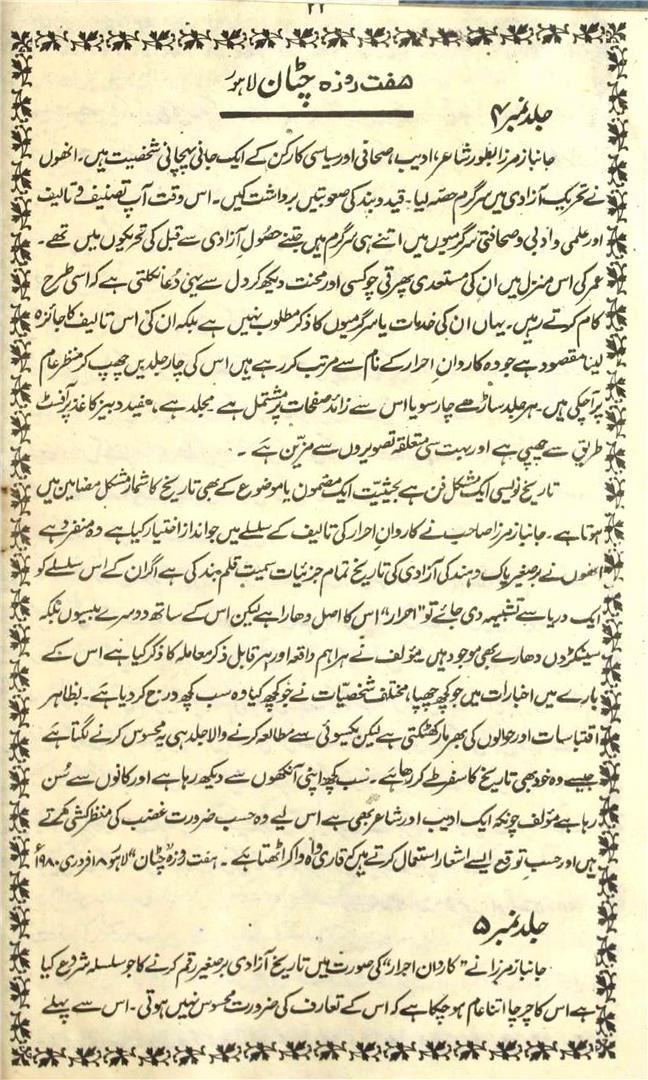 ۲۲
ہفت روزہ چٹان لاہور
جلد نمبر ۴
جانباز مرزا بطور شاعر، ادیب، صحافی اور سیاسی کارکن کے ایک جانی پہچانی شخصیت ہیں۔ انھوں
نے تحریکِ آزادی میں سرگرم حصہ لیا۔ قید و بند کی صعوبتیں برداشت کیں۔ اس وقت آپ تصنیف و تالیف
اور علمی و ادبی و صحافتی سرگرمیوں میں اتنے ہی سرگرم ہیں جتنے حصُولِ آزادی سے قبل کی تحریکوں میں تھے۔
عمر کی اس منزل میں ان کی مستعدی پھرتی چوکسی اور محنت دیکھ کر دل سے یہی دُعا نکلتی ہے کہ اسی طرح
کام کرتے رہیں۔ یہاں ان کی خدمات یا سرگرمیوں کا ذکر مطلوب نہیں ہے بلکہ ان کی اس تالیف کا جائزہ
لینا مقصود ہے جو وہ کاروانِ احرار کے نام سے مرتب کر رہے ہیں اس کی چار جلدیں چھپ کر منظر عام
پر آچکی ہیں۔ ہر جلد ساڑھے چار سو یا اس سے زائد صفحات پر مشتمل ہے مجلد ہے، سفید دبیز کاغذ پر آفسٹ
طریق سے چھپی ہے اور بہت سی متعلقہ تصویروں سے مزیّن ہے ۔
تاریخ نویسی ایک مشکل فن ہے بحیثیّت ایک مضمون یا موضوع کے بھی تاریخ کا شمار مشکل مضامین میں
ہوتا ہے۔ جانباز مرزا صاحب نے کاروانِ احرار کی تالیف کے سلسلے میں جو انداز اختیار کیا ہے وہ منفرد ہے
انھوں نے برصغیر پاک و ہند کی آزادی کی تاریخ تمام جزئیات سمیت قلم بند کی ہے اگر ان کے اس سلسلے کو
ایک دریا سے تشبیہہ دی جائے تو "احرار" اس کا اصل دھارا ہے لیکن اس کے ساتھ دوسرے بیسیوں بلکہ
سینکڑوں دھارے بھی موجود ہیں مؤلف نے ہر اہم واقعہ اور ہر قابل ذکر معاملہ کا ذکر کیا ہے اس کے
بارے میں اخبارات میں جو کچھ چھپا، مختلف شخصیّات نے جو کچھ کہا وہ سب کچھ درج کر دیا ہے۔ بظاہر
اقتباسات اور حوالوں کی بھرمار کھٹکتی ہے لیکن یکسوئی سے مطالعہ کرنے والا جلد ہی یہ محسوس کرنے لگتا ہے
جیسے وہ خود بھی تاریخ کا سفر طے کر رہا ہے۔ سب کچھ اپنی آنکھوں سے دیکھ رہا ہے اور کانوں سے سُن
رہا ہے مؤلف چونکہ ایک ادیب اور شاعر بھی ہے اس لیے وہ حسب ضرورت غضب کی منظر کشی کرتے
ہیں اور حسب توقع ایسے اشعار استعمال کرتے ہیں کہ قاری واہ وا کر اٹھتا ہے۔ ہفت روزہ "چٹان" لاہور ۱۸ فروری ۱۹۸۰ء
جلد نمبر ۵
جانباز مرزا نے "کاروان احرار" کی صورت میں تاریخ آزادی برصغیر رقم کرنے کا جو سلسلہ شروع کیا
ہے اس کا چرچا اتنا عام ہو چکا ہے کہ اس کے تعارف کی ضرورت محسوس نہیں ہوتی۔ اس سے پہلے